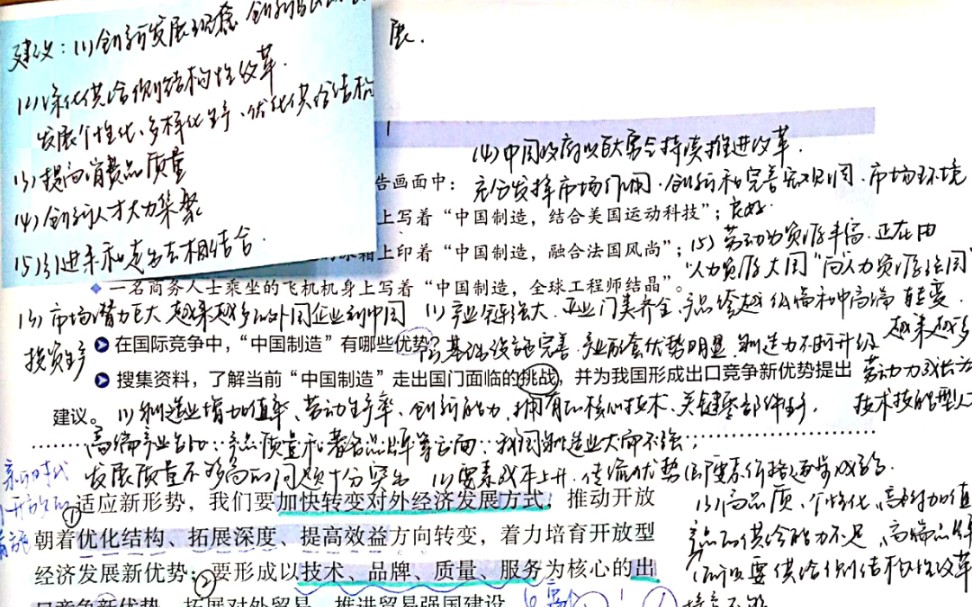 建议：(1)创新发展理念 创新
展.
(2)深化供给侧结构性改革.
发展个性化、多样化生产、优化供给结构
(3)提高消费品质量
(4)创新人才大力集聚
(5)引进来和走出去相结合.
(4)中国政府以巨大勇气持续推进改革.
告画面中：
充分发挥市场作用、创新和完善宏观调、市场环境
上写着“中国制造，结合美国运动科技”；
良好.
上印着“中国制造，融合法国风尚”；
(5)劳动力资源丰富.正在由
一名商务人士乘坐的飞机机身上写着“中国制造，全球工程师结晶”。
“人力资源大国”向人力资源强国
(3)市场潜力巨大 越来越多的外国企业到中国
投资生产
(1)产业链强大、工业门类齐全、产品跨越低端和中高端
在国际竞争中，“中国制造”有哪些优势？
(2)基础设施完善、产业配套优势明显、制造力不断升级
越来越多
搜集资料，了解当前“中国制造”走出国门面临的挑战，并为我国形成出口竞争新优势提出
劳动力
建议。
(1)制造业增加值率、劳动生产率、创新能力、拥有的核心技术、关键零部件生产，
技术技能型人
高端产业占比、产品质量和著名品牌等方面，我国制造业大而不强；
发展质量不够高的问题十分突出
(2)要素成本上升，传统优势
适应新形势，我们要加快转变对外经济发展方式，推动开放
(3)高品质、个性化、高附加值
朝着优化结构、拓展深度、提高效益方向转变，着力培育开放型
产品的供给能力不足，高端品牌
经济发展新优势；要形成以技术、品牌、质量、服务为核心的出
供给侧结构性改革
口竞争新优势，拓展对外贸易，推进贸易强国建设